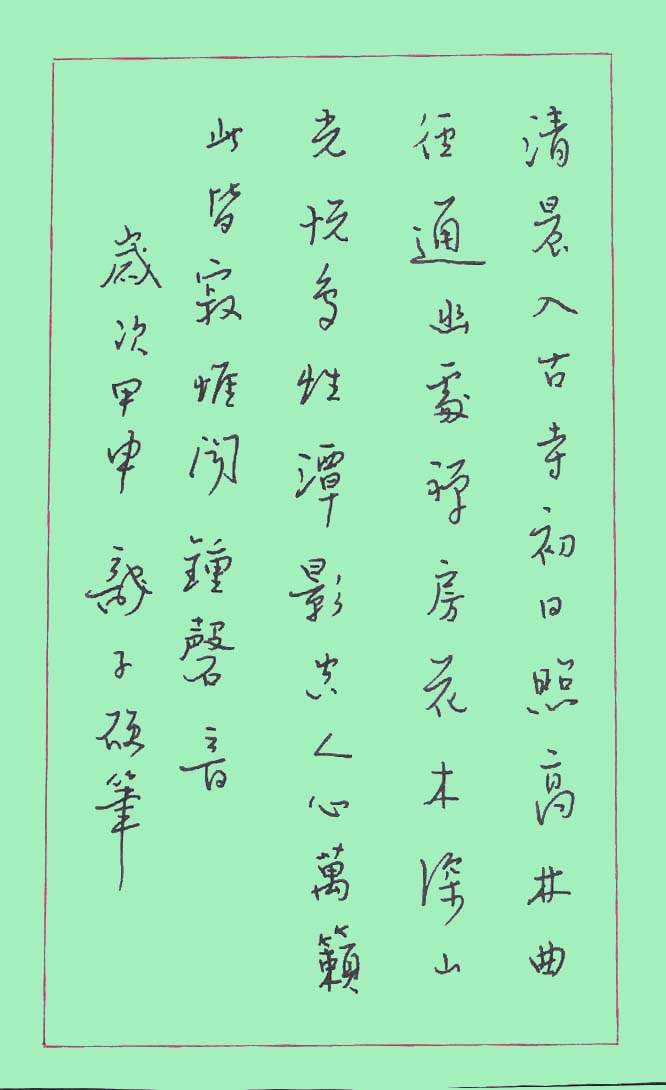 清晨入古寺初日照高林曲
徑通幽處禪房花木深山
光悅鳥性潭影空人心萬籟
此皆寂惟聞鐘磬音
歲次甲申 子硬筆